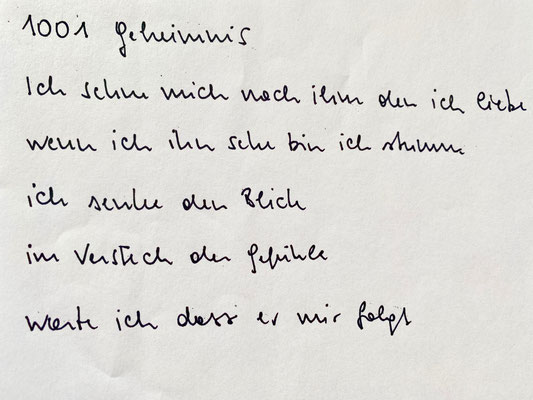 1001 Geheimnis
Ich sehne mich nach ihm den ich liebe
wenn ich ihn sehe bin ich stumm
ich senke den Blick
im Versteck der Gefühle
warte ich dass er mir folgt